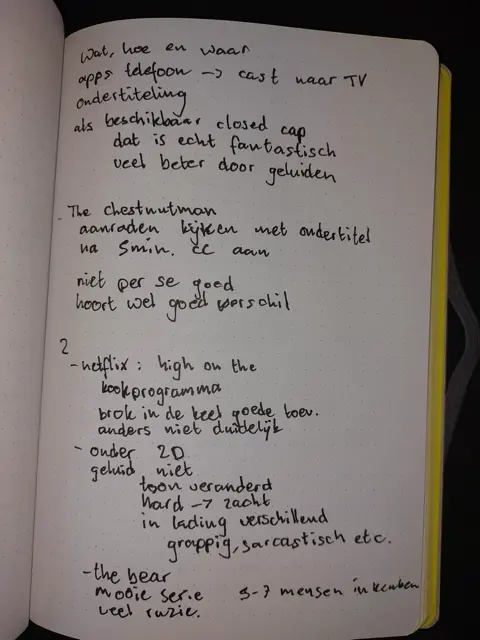 Wat, hoe en waar
apps telefoon -> cast naar TV
ondertiteling
als beschikbaar closed cap
dat is echt fantastisch
veel beter door geluiden
- The chestnutman
aanraden kijken met ondertitel
na 5min. cc aan
niet per se goed
hoort wel goed verschil
2
- netflix: high on the
kookprogramma
brok in de keel goede toev.
anders niet duidelijk
- onder 2D
geluid niet
toon veranderd
hard -> zacht
in lading verschillend
grappig, sarcastisch etc.
- the bear
mooie serie 5-7 mensen in keuken
veel ruzie.